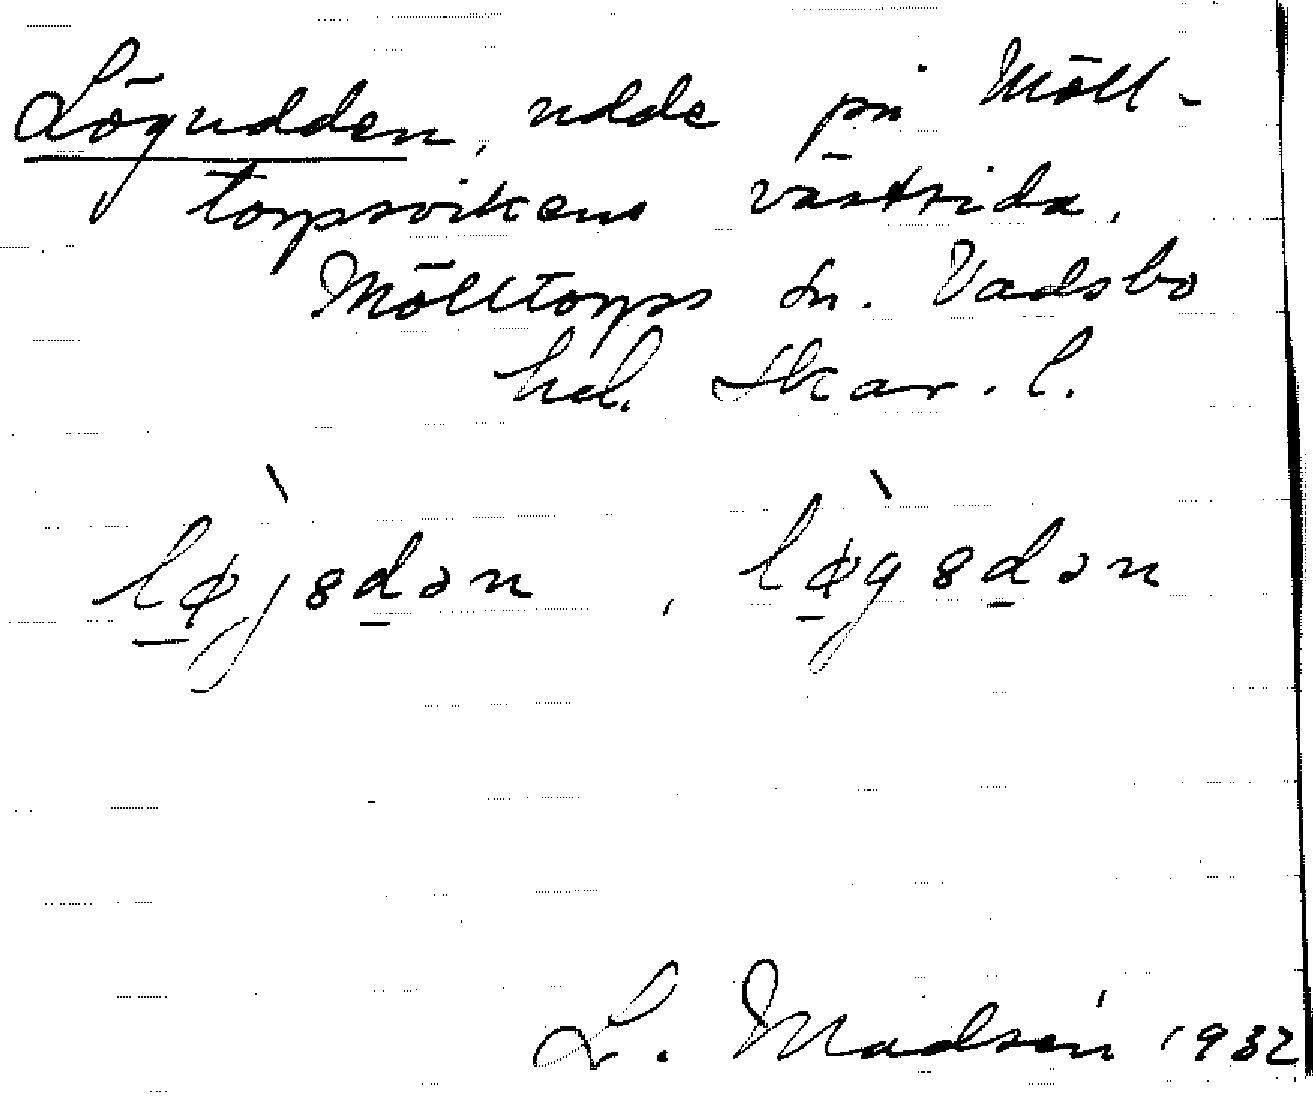 Lögudden, udde på Möll-
torpsvikens västsida.
Mölltorps sn. Vadsbo
hd. Skar. l.
lø̀jsdən, lø̀gsdən
L. Madsén 1932